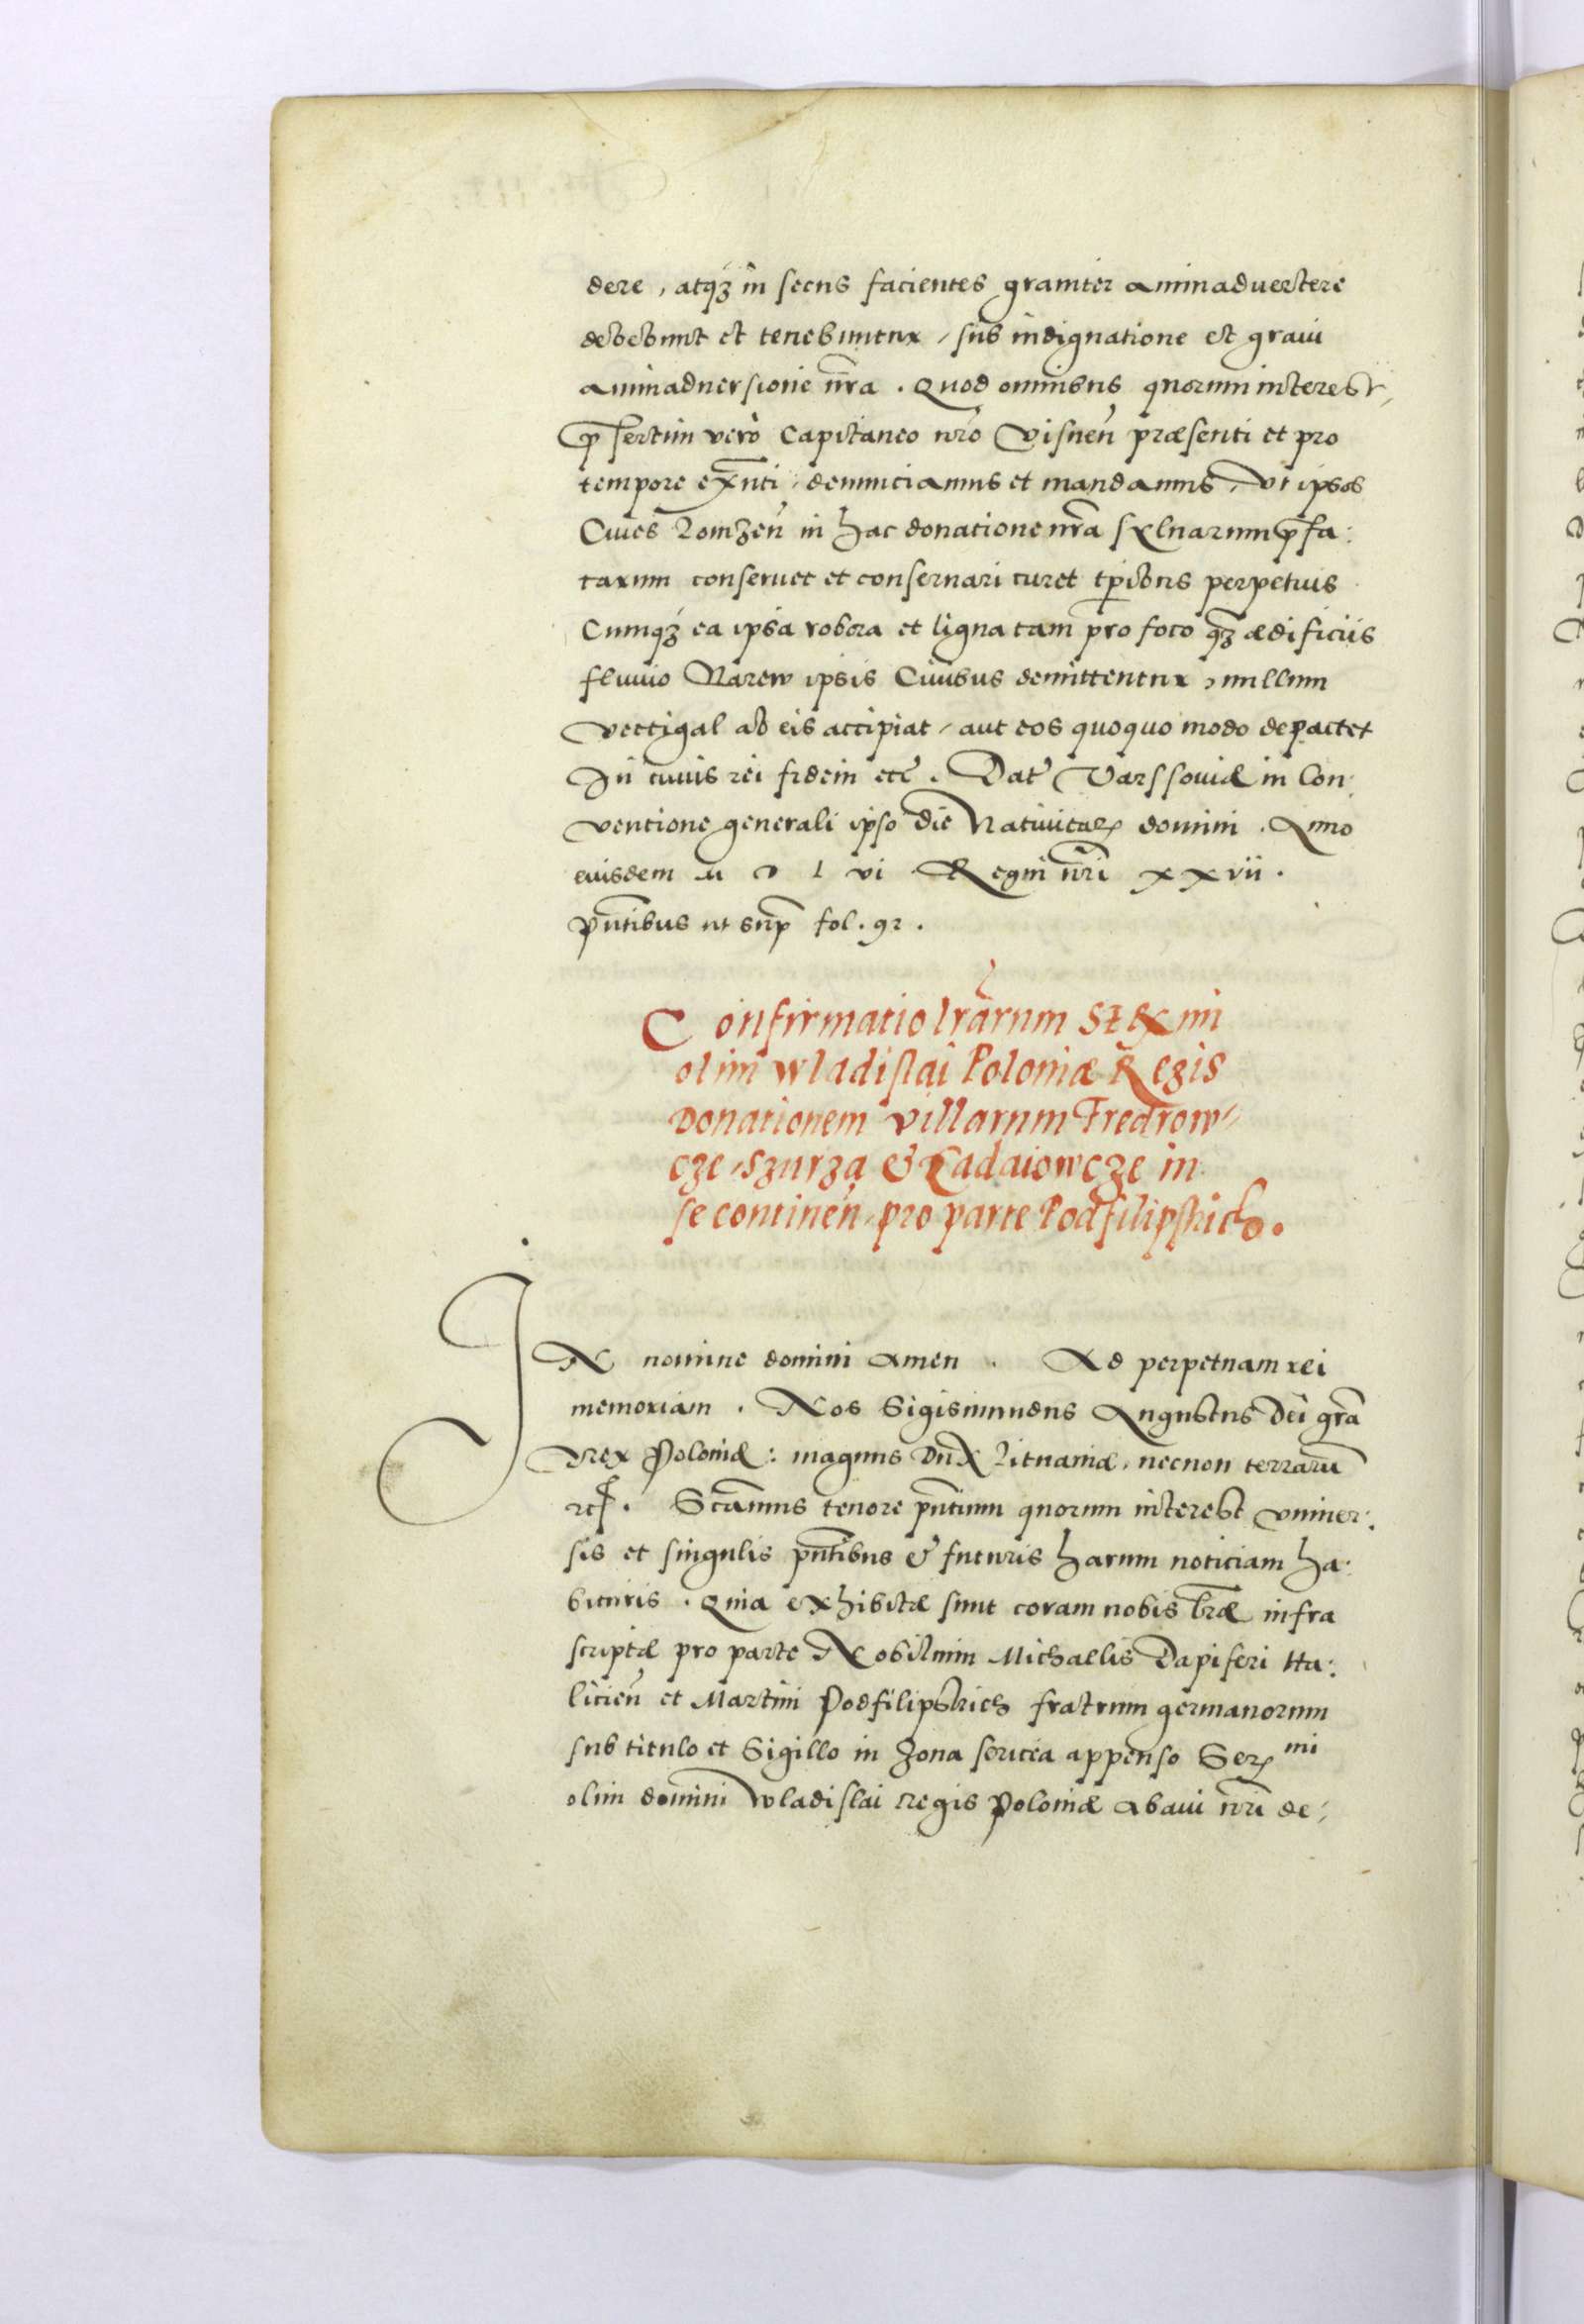 dere, atq3 in secus facientes grauiter animaduertere
debebunt et tenebuntur, sub indignatione et graui
animaduersione nrã. Quod omnibus quorum interest,
p̃sertim verò Capitaneo nrõ Visneñ præsenti et pro
tempore exñti, denunciamus et mandamus, vt ipsos
Ciues Lomzeñ in hac donatione nrã syluarum p̃fa:
tarum conseruet et conseruari curet tp̃ibus perpetuis
Cumq3 ea ipsa robora et ligna tam pro foco q̃3 ædificiis
fluuio Narew ipsis Ciuibus demittentur, nullum
vectigal ab eis accipiat, aut eos quoquo modo depactet
In cuius rei fidem etč. Dat Varssouiæ in Con:
ventione generali ipso die Natiuitatis domini. Anno
eiusdem M D L vi Regni nrĩ xxvii.
p̃ntibus ut sup̃ fol. 92.
Confirmatio lrãrum Sermi
olim Wladislai Poloniæ Regis
Donationem villarum Fredrow,
cze, Szurza & Ladaiowcze in
se contineñ, pro parte Podfilipskich.
IN nomine domini Amen. Ad perpetuam rei
memoriam. Nos Sigismundus Augustus Dei grã
Rex Poloniæ: magnus Dux Lituaniæ, necnon terrarũ
etc. Scimus tenore p̃ntium quorum interest vniuer:
sis et singulis p̃ntibus & futuris harum noticiam ha:
bituris. Quia exhibitæ sunt coram nobis lrãe infra
scriptæ pro parte Nobilium Michaelis Dapiferi Ha:
licieñ et Martini Podfilipskich fratrum germanorum
sub titulo et Sigillo in Zona sericea appenso Sermi
olim domini Wladislai Regis Poloniæ abaui nrĩ de,